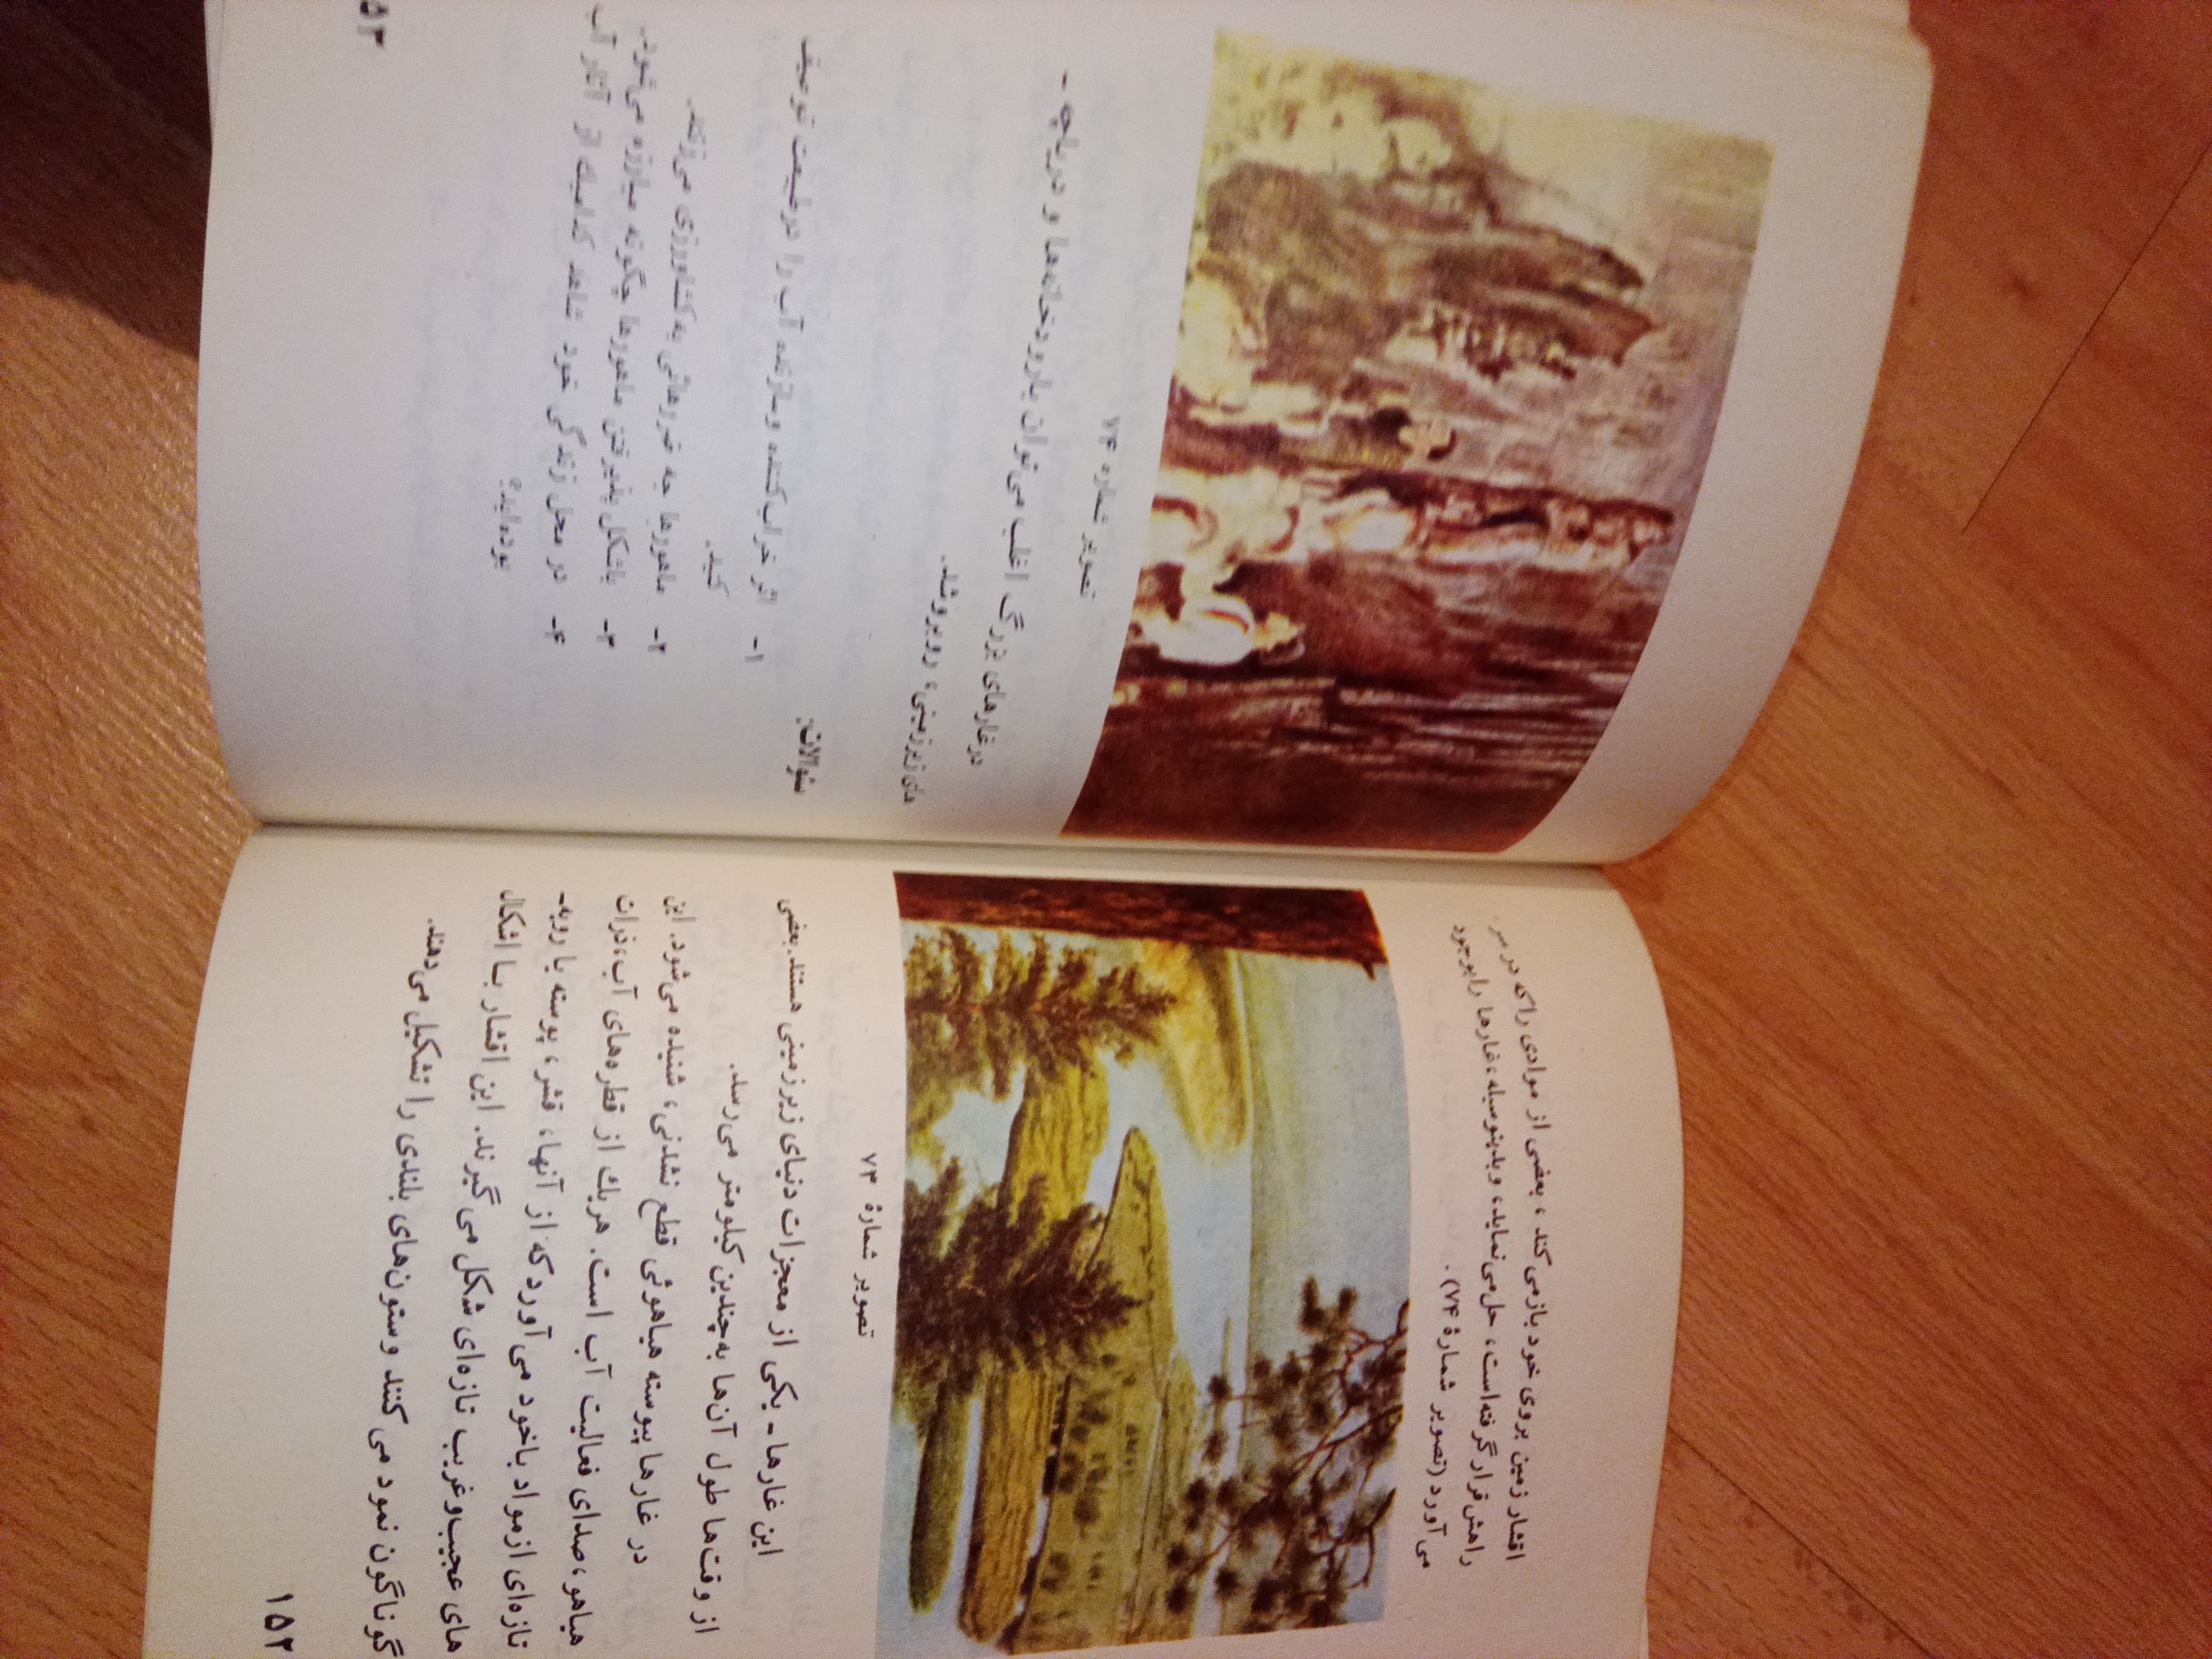 اقشار زمین بروی خود بازمی‌کند، بعضی از موادی را که در سر
راهش قرار گرفته‌است، حل می‌نماید، و بدینوسیله، غارها را بوجود
می‌آورد (تصویر شمارهٔ ۷۴).
تصویر شمارهٔ ۷۳
این غارها - یکی از معجزات دنیای زیرزمینی هستند. بعضی
از وقت‌ها طول آن‌ها به چندین کیلومتر می‌رسد.
در غارها پیوسته هیاهوئی قطع نشدنی، شنیده می‌شود. این
هیاهو، صدای فعالیت آب است. هریك از قطره‌های آب، ذرات
تازه‌ای ازمواد باخود می‌آورد که از آنها، قشر، پوسته یا رویه-
های عجیب‌وغریب تازه‌ای شکل می‌گیرند. این اقشار بـا اشکال
گوناگون نمود می‌کنند و ستون‌های بلندی را تشکیل می‌دهند.
۱۵۲
تصویر شماره ۷۴
درغارهای بزرگ اغلب می‌توان بارودخانه‌ها و دریاچه-
های زیرزمینی، روبروشد.
سئوالات:
۱- اثر خراب‌کننده وسازنده آب را درطبیعت توصیف
کنید.
۲- ماهورها چه ضررهائی به کشاورزی می‌زنند.
۳- باشکل پذیرفتن ماهورها چگونه مبارزه می‌شود.
۴- در محل زندگی خود شاهد کدامیك از آثار آب
بوده‌اید؟
۵۳